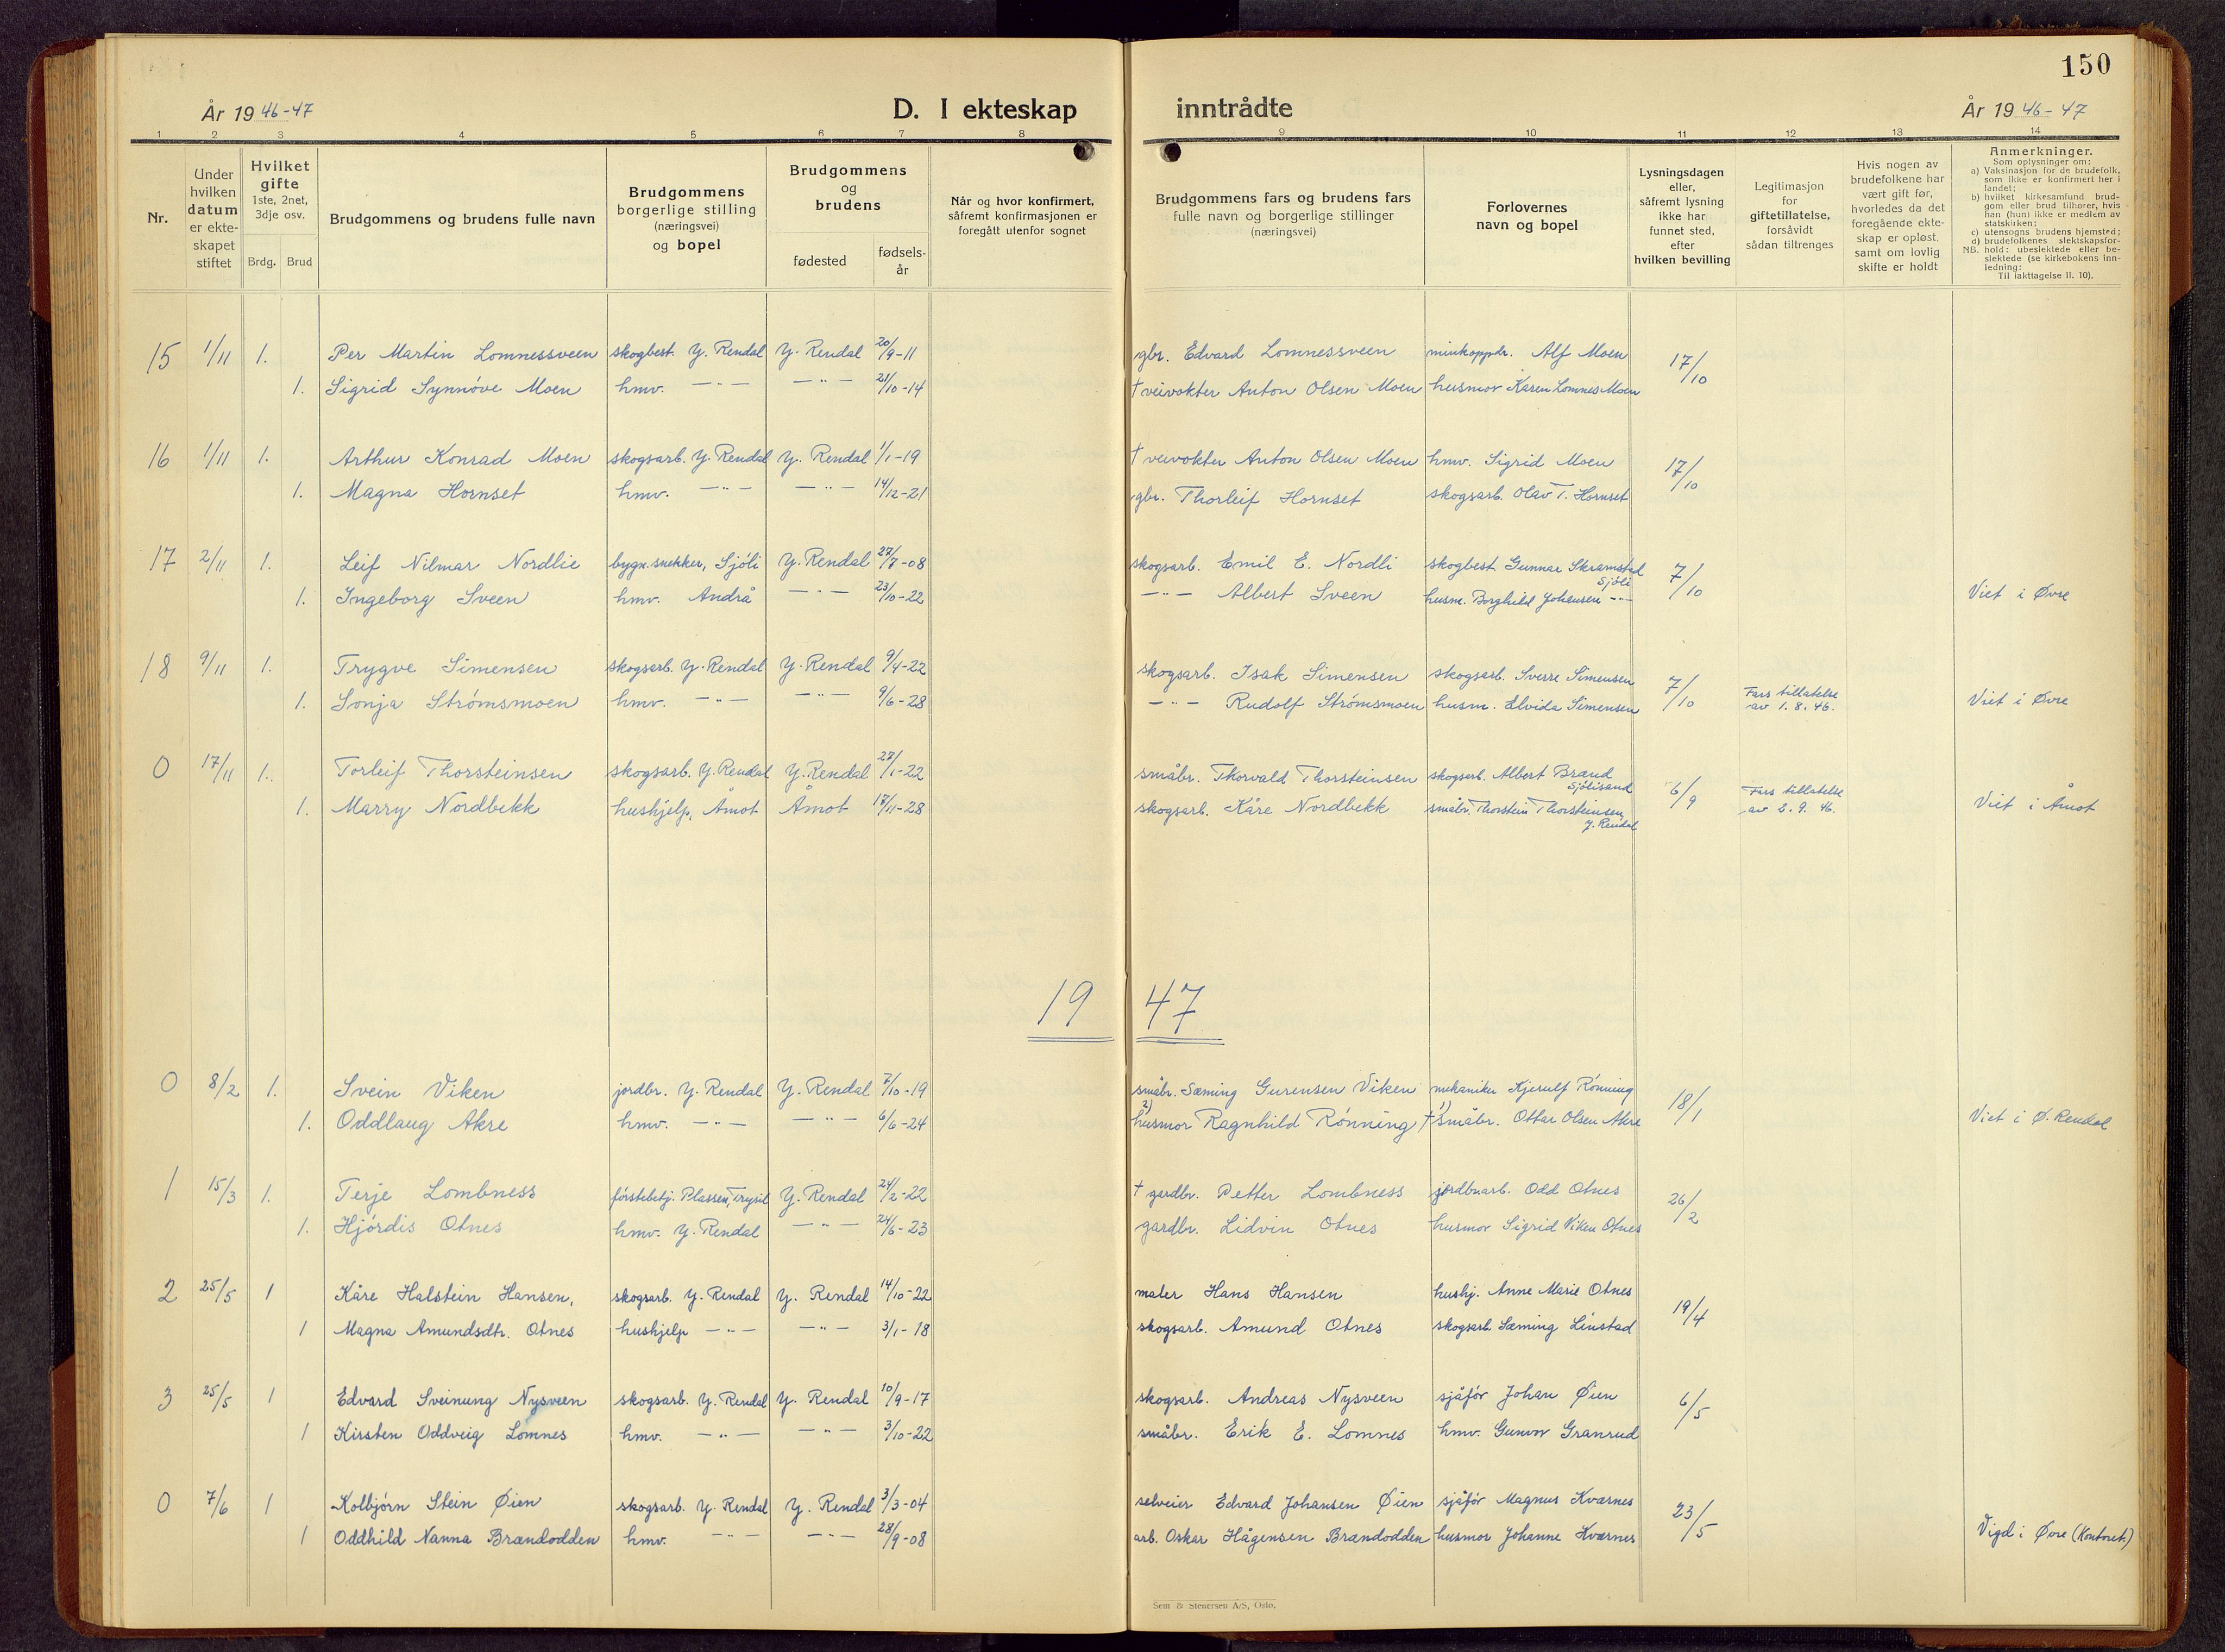 150
År 19 46-47
D. I ekteskap inntrådte
År 19 46-47
1 2 3 4 5 6 7 8 9 10 11 12 13 14
Nr.
Under hvilken datum er ekte-skapet stiftet
Hvilket gifte 1ste, 2net, 3dje osv.
Brdg. Brud
Brudgommens og brudens fulle navn
Brudgommens borgerlige stilling (næringsvei) og bopel
Brudgommens og brudens
fødested fødsels-år
Når og hvor konfirmert, såfremt konfirmasjonen er foregått utenfor sognet
Brudgommens fars og brudens fars fulle navn og borgerlige stillinger (næringsvei)
Forlovernes navn og bopel
Lysningsdagen eller, såfremt lysning ikke har funnet sted, efter hvilken bevilling
Legitimasjon for giftetillatelse, forsåvidt sådan tiltrenges
Hvis nogen av brudefolkene har vært gift før, hvorledes da det foregående ekte-skap er opløst, samt om lovlig skifte er holdt
Anmerkninger.
Som oplysninger om:
a) Vaksinasjon for de brudefolk, som ikke er konfirmert her i landet;
b) hvilket kirkesamfund brud-gom eller brud tilhører, hvis han (hun) ikke er medlem av statskirken;
c) utensogns brudens hjemsted;
d) brudefolkenes slektskapsfor-hold: ubeslektede eller be-slektede (se kirkebokens inn-ledning:
NB. Til iakttagelse II. 10).
15 1/11 1. Per Martin Lomnessveen skogbest. Y. Rendal Y. Rendal 20/9-11 gbr. Edvard Lomnessveen minkoppdr. Alf Moen 17/10
1. Sigrid Synnöve Moen hmv. —"— —"— 21/10-14 † veivokter Anton Olsen Moen husmor Karen Lomnes Moen
16 1/11 1. Arthur Konrad Moen skogsarb. Y. Rendal Y. Rendal 1/1-19 † veivokter Anton Olsen Moen hmv. Sigrid Moen 17/10
1. Magna Hornset hmv. —"— —"— 14/12-21 gbr. Thorleif Hornset skogsarb. Olav T. Hornset
17 2/11 1. Leif Nilmar Nordlie bygn.snekker, Sjöli Y. Rendal 27/7-08 skogsarb. Emil E. Nordli skogbest. Gunnar Skramstad Sjöli 7/10
1. Ingeborg Sveen hmv. Andrå —"— 23/10-22 —"— Albert Sveen husm. Borghild Johansen —"— Viet i Øvre
18 9/11 1. Trygve Simensen skogsarb. Y. Rendal Y. Rendal 9/4-22 skogsarb. Isak Simensen skogsarb. Sverre Simensen 7/10 Fars tillatelse av 1.8.46.
1. Sonja Strömsmoen hmv. —"— —"— 9/6-28 —"— Rudolf Strömsmoen husm. Elvida Simensen Viet i Øvre
0 17/11 1. Torleif Thorsteinsen skogsarb. Y. Rendal Y. Rendal 27/1-22 småbr. Thorvald Thorsteinsen skogsarb. Albert Brænd Sjölisand 6/9 Fars tillatelse
1. Marry Nordbekk hushjelp, Åmot Åmot 17/11-28 skogsarb. Kåre Nordbekk småbr. Thorstein Thorsteinsen, Y. Rendal Viet i Åmot
19 47
0 8/2 1. Svein Viken jordbr. Y. Rendal Y. Rendal 7/10-19 småbr. Sæming Gurensen Viken mekaniker Kjerulf Rönning 18/1
1. Oddlaug Akre hmv. —"— —"— 6/6-24 2) husmor Ragnhild Rönning 1) † småbr. Ottar Olsen Akre Viet i Ø. Rendal
1 15/3 1. Terje Lombness förstebetj. Plassen, Trysil Y. Rendal 24/2-22 † gardbr. Petter Lombness jordbrarb. Odd Otnes 26/2
1. Hjördis Otnes hmv. Y. Rendal —"— 24/6-23 gardbr. Lidvin Otnes husmor Sigrid Viken Otnes
2 25/5 1 Kåre Halstein Hansen, skogsarb. Y. Rendal Y. Rendal 14/10-22 maler Hans Hansen hushj. Anne Marie Otnes 19/4
1 Magna Amundsdtr. Otnes hushjelp —"— —"— 3/1-18 skogsarb. Amund Otnes skogsarb. Sæming Linstad
3 25/5 1 Edvard Sveinung Nysveen skogsarb. Y. Rendal Y. Rendal 10/9-17 skogsarb. Andreas Nysveen sjåför Johan Øien 6/5
1 Kirsten Oddveig Lomnes hmv. —"— —"— 3/10-22 småbr. Erik E. Lomnes hmv. Gunvor Granrud
0 7/6 1 Kolbjörn Stein Øien skogsarb. Y. Rendal Y. Rendal 3/3-04 selveier Edvard Johansen Øien sjåför Magnus Kværnes 23/5
1 Oddhild Nanna Brændodden hmv. —"— —"— 28/9-08 arb. Oskar Hågensen Brændodden husmor Johanne Kværnes Vigd i Øvre (Kontoret)
Sem & Stenersen A/S, Oslo.